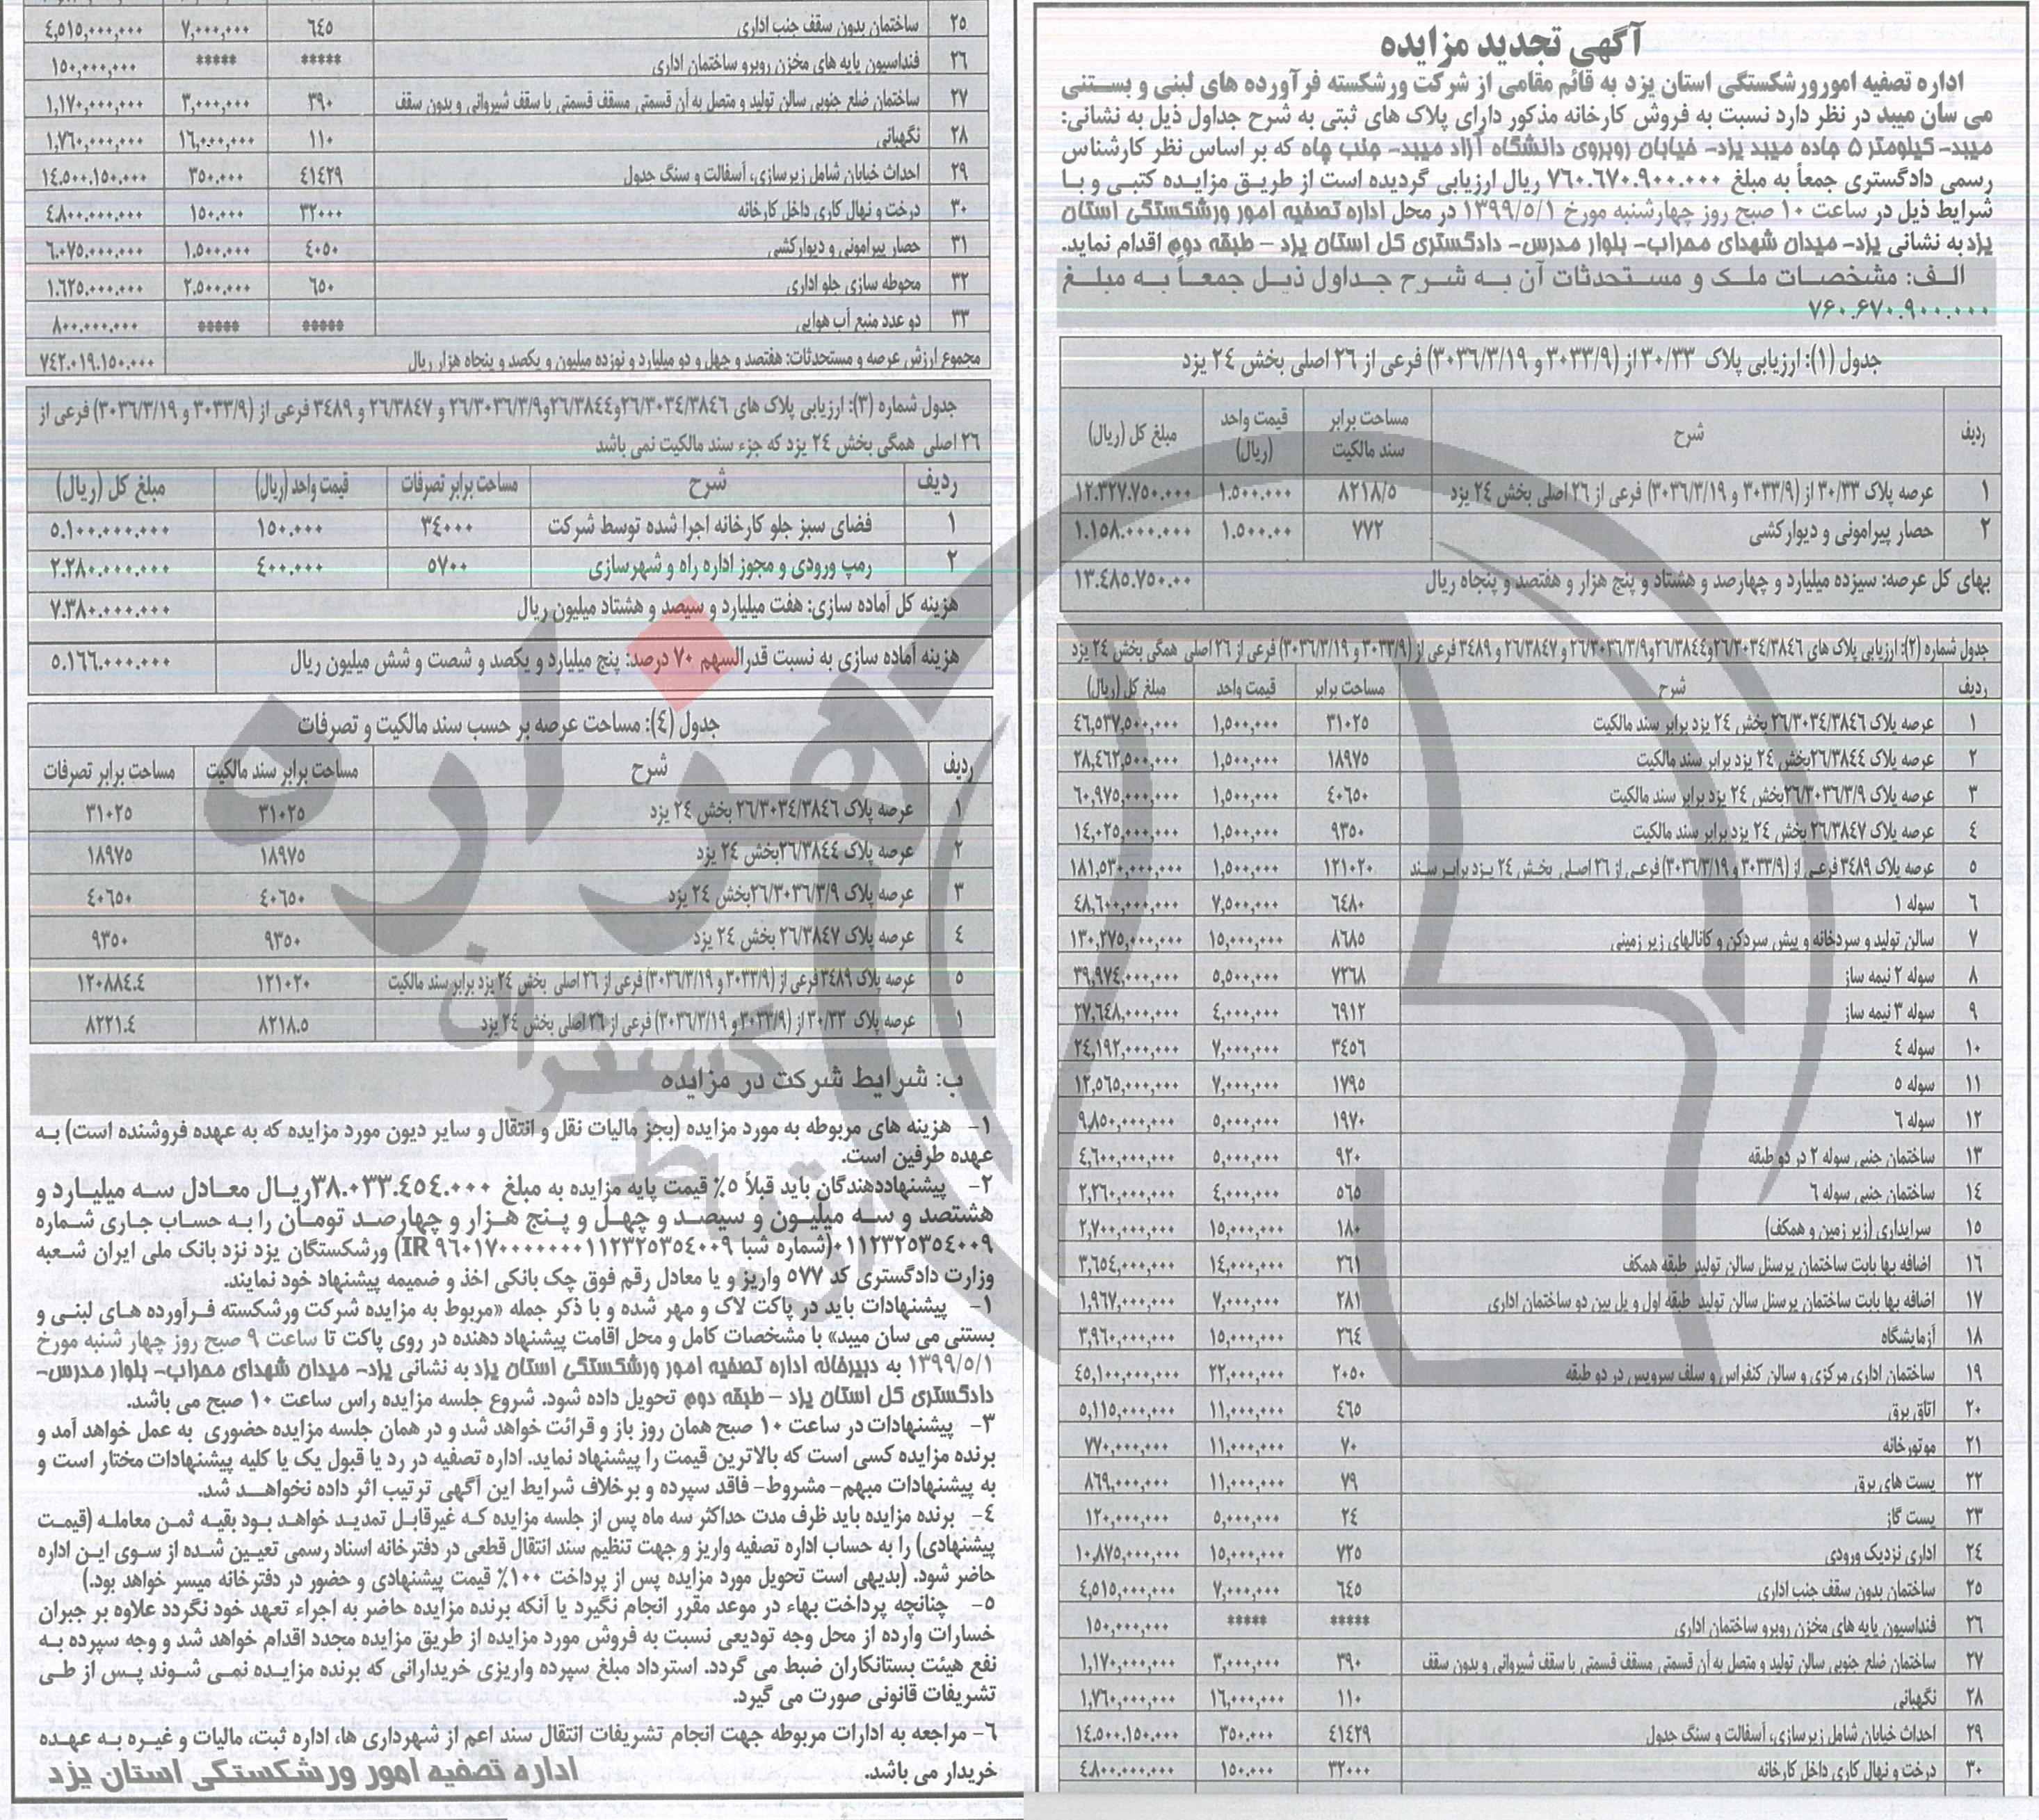 آگهی تجدید مزایده
اداره تصفیه امورورشکستگی استان یزد به قائم مقامی از شرکت ورشکسته فرآورده های لبنی و بستنی
می سان میبد در نظر دارد نسبت به فروش کارخانه مذکور دارای پلاک های ثبتی به شرح جداول ذیل به نشانی:
میبد- کیلومتر ۵ جاده میبد یزد- خیابان روبروی دانشگاه آزاد میبد- جنب چاه که بر اساس نظر کارشناس
رسمی دادگستری جمعاً به مبلغ ۷۶۰.۶۷۰.۹۰۰.۰۰۰ ریال ارزیابی گردیده است از طریق مزایده کتبی و با
شرایط ذیل در ساعت ۱۰ صبح روز چهارشنبه مورخ ۱۳۹۹/۵/۱ در محل اداره تصفیه امور ورشکستگی استان
یزد به نشانی یزد- میدان شهدای محراب- بلوار مدرس- دادگستری کل استان یزد – طبقه دوم اقدام نماید.
الف: مشخصات ملک و مستحدثات آن به شرح جداول ذیل جمعاً به مبلغ
۷۶۰.۶۷۰.۹۰۰.۰۰۰
جدول (۱): ارزیابی پلاک ۳۰/۳۳ از (۳۰۳۳/۹ و ۳۰۳۶/۳/۱۹) فرعی از ۲۶ اصلی بخش ۲۴ یزد
ردیف شرح مساحت برابر سند مالکیت قیمت واحد (ریال) مبلغ کل (ریال)
۱ عرصه پلاک ۳۰/۳۳ از (۳۰۳۳/۹ و ۳۰۳۶/۳/۱۹) فرعی از ۲۶ اصلی بخش ۲۴ یزد ۸۲۱۸/۵ ۱.۵۰۰.۰۰۰ ۱۲.۳۲۷.۷۵۰.۰۰۰
۲ حصار پیرامونی و دیوارکشی ۷۷۲ ۱.۵۰۰.۰۰ ۱.۱۵۸.۰۰۰.۰۰۰
بهای کل عرصه: سیزده میلیارد و چهارصد و هشتاد و پنج هزار و هفتصد و پنجاه ریال ۱۳.۴۸۵.۷۵۰.۰۰
جدول شماره (۲): ارزیابی پلاک های ۲۶/۳۰۳۴/۳۸۴۶و۲۶/۳۸۴۴و۲۶/۳۰۳۶/۳/۹ و ۲۶/۳۸۴۷ و ۳۴۸۹ فرعی از (۳۰۳۳/۹ و ۳۰۳۶/۳/۱۹) فرعی از ۲۶ اصلی همگی بخش ۲۴ یزد
ردیف شرح مساحت برابر قیمت واحد مبلغ کل (ریال)
۱ عرصه پلاک ۲۶/۳۰۳۴/۳۸۴۶ بخش ۲۴ یزد برابر سند مالکیت ۳۱۰۲۵ ۱,۵۰۰,۰۰۰ ۴۶,۵۳۷,۵۰۰,۰۰۰
۲ عرصه پلاک ۲۶/۳۸۴۴بخش ۲۴ یزد برابر سند مالکیت ۱۸۹۷۵ ۱,۵۰۰,۰۰۰ ۲۸,۴۶۲,۵۰۰,۰۰۰
۳ عرصه پلاک ۲۶/۳۰۳۶/۳/۹بخش ۲۴ یزد برابر سند مالکیت ۴۰۶۵۰ ۱,۵۰۰,۰۰۰ ۶۰,۹۷۵,۰۰۰,۰۰۰
۴ عرصه پلاک ۲۶/۳۸۴۷ بخش ۲۴ یزد برابر سند مالکیت ۹۳۵۰ ۱,۵۰۰,۰۰۰ ۱۴,۰۲۵,۰۰۰,۰۰۰
۵ عرصه پلاک ۳۴۸۹ فرعی از (۳۰۳۳/۹ و ۳۰۳۶/۳/۱۹) فرعی از ۲۶ اصلی بخش ۲۴ یزد برابر سند ۱۲۱۰۲۰ ۱,۵۰۰,۰۰۰ ۱۸۱,۵۳۰,۰۰۰,۰۰۰
۶ سوله ۱ ۶۴۸۰ ۷,۵۰۰,۰۰۰ ۴۸,۶۰۰,۰۰۰,۰۰۰
۷ سالن تولید و سردخانه و پیش سردکن و کانالهای زیر زمینی ۸۶۸۵ ۱۵,۰۰۰,۰۰۰ ۱۳۰,۲۷۵,۰۰۰,۰۰۰
۸ سوله ۲ نیمه ساز ۷۲۶۸ ۵,۵۰۰,۰۰۰ ۳۹,۹۷۴,۰۰۰,۰۰۰
۹ سوله ۳ نیمه ساز ۶۹۱۲ ۴,۰۰۰,۰۰۰ ۲۷,۶۴۸,۰۰۰,۰۰۰
۱۰ سوله ۴ ۳۴۵۶ ۷,۰۰۰,۰۰۰ ۲۴,۱۹۲,۰۰۰,۰۰۰
۱۱ سوله ۵ ۱۷۹۵ ۷,۰۰۰,۰۰۰ ۱۲,۵۶۵,۰۰۰,۰۰۰
۱۲ سوله ۶ ۱۹۷۰ ۵,۰۰۰,۰۰۰ ۹,۸۵۰,۰۰۰,۰۰۰
۱۳ ساختمان جنبی سوله ۲ در دو طبقه ۹۲۰ ۵,۰۰۰,۰۰۰ ۴,۶۰۰,۰۰۰,۰۰۰
۱۴ ساختمان جنبی سوله ۶ ۵۶۵ ۴,۰۰۰,۰۰۰ ۲,۲۶۰,۰۰۰,۰۰۰
۱۵ سرایداری (زیر زمین و همکف) ۱۸۰ ۱۵,۰۰۰,۰۰۰ ۲,۷۰۰,۰۰۰,۰۰۰
۱۶ اضافه بها بابت ساختمان پرسنل سالن تولید طبقه همکف ۲۶۱ ۱۴,۰۰۰,۰۰۰ ۳,۶۵۴,۰۰۰,۰۰۰
۱۷ اضافه بها بابت ساختمان پرسنل سالن تولید طبقه اول و پل بین دو ساختمان اداری ۲۸۱ ۷,۰۰۰,۰۰۰ ۱,۹۶۷,۰۰۰,۰۰۰
۱۸ آزمایشگاه ۲۶۴ ۱۵,۰۰۰,۰۰۰ ۳,۹۶۰,۰۰۰,۰۰۰
۱۹ ساختمان اداری مرکزی و سالن کنفراس و سلف سرویس در دو طبقه ۲۰۵۰ ۲۲,۰۰۰,۰۰۰ ۴۵,۱۰۰,۰۰۰,۰۰۰
۲۰ اتاق برق ۴۶۵ ۱۱,۰۰۰,۰۰۰ ۵,۱۱۵,۰۰۰,۰۰۰
۲۱ موتورخانه ۷۰ ۱۱,۰۰۰,۰۰۰ ۷۷۰,۰۰۰,۰۰۰
۲۲ پست های برق ۷۹ ۱۱,۰۰۰,۰۰۰ ۸۶۹,۰۰۰,۰۰۰
۲۳ پست گاز ۲۴ ۵,۰۰۰,۰۰۰ ۱۲۰,۰۰۰,۰۰۰
۲۴ اداری نزدیک ورودی ۷۲۵ ۱۵,۰۰۰,۰۰۰ ۱۰,۸۷۵,۰۰۰,۰۰۰
۲۵ ساختمان بدون سقف جنب اداری ۶۴۵ ۷,۰۰۰,۰۰۰ ۴,۵۱۵,۰۰۰,۰۰۰
۲۶ فنداسیون پایه های مخزن روبرو ساختمان اداری ***** ***** ۱۵۰,۰۰۰,۰۰۰
۲۷ ساختمان ضلع جنوبی سالن تولید و متصل به آن قسمتی مسقف قسمتی با سقف شیروانی و بدون سقف ۳۹۰ ۳,۰۰۰,۰۰۰ ۱,۱۷۰,۰۰۰,۰۰۰
۲۸ نگهبانی ۱۱۰ ۱۶,۰۰۰,۰۰۰ ۱,۷۶۰,۰۰۰,۰۰۰
۲۹ احداث خیابان شامل زیرسازی، آسفالت و سنگ جدول ۴۱۴۲۹ ۳۵۰.۰۰۰ ۱۴.۵۰۰.۱۵۰.۰۰۰
۳۰ درخت و نهال کاری داخل کارخانه ۳۲۰۰۰ ۱۵۰.۰۰۰ ۴.۸۰۰.۰۰۰.۰۰۰
۲۵ ساختمان بدون سقف جنب اداری ۶۴۵ ۷,۰۰۰,۰۰۰ ۴,۵۱۵,۰۰۰,۰۰۰
۲۶ فنداسیون پایه های مخزن روبرو ساختمان اداری ***** ***** ۱۵۰,۰۰۰,۰۰۰
۲۷ ساختمان ضلع جنوبی سالن تولید و متصل به آن قسمتی مسقف قسمتی با سقف شیروانی و بدون سقف ۳۹۰ ۳,۰۰۰,۰۰۰ ۱,۱۷۰,۰۰۰,۰۰۰
۲۸ نگهبانی ۱۱۰ ۱۶,۰۰۰,۰۰۰ ۱,۷۶۰,۰۰۰,۰۰۰
۲۹ احداث خیابان شامل زیرسازی، آسفالت و سنگ جدول ۴۱۴۲۹ ۳۵۰.۰۰۰ ۱۴.۵۰۰.۱۵۰.۰۰۰
۳۰ درخت و نهال کاری داخل کارخانه ۳۲۰۰۰ ۱۵۰.۰۰۰ ۴.۸۰۰.۰۰۰.۰۰۰
۳۱ حصار پیرامونی و دیوارکشی ۴۰۵۰ ۱.۵۰۰.۰۰۰ ۶.۰۷۵.۰۰۰.۰۰۰
۳۲ محوطه سازی جلو اداری ۶۵۰ ۲.۵۰۰.۰۰۰ ۱.۶۲۵.۰۰۰.۰۰۰
۳۳ دو عدد منبع آب هوایی ***** ***** ۸۰۰.۰۰۰.۰۰۰
مجموع ارزش عرصه و مستحدثات: هفتصد و چهل و دو میلیارد و نوزده میلیون و یکصد و پنجاه هزار ریال ۷۴۲.۰۱۹.۱۵۰.۰۰۰
جدول شماره (۳): ارزیابی پلاک های ۲۶/۳۰۳۴/۳۸۴۶و۲۶/۳۸۴۴و۲۶/۳۰۳۶/۳/۹ و ۲۶/۳۸۴۷ و ۳۴۸۹ فرعی از (۳۰۳۳/۹ و ۳۰۳۶/۳/۱۹) فرعی از
۲۶ اصلی همگی بخش ۲۴ یزد که جزء سند مالکیت نمی باشد
ردیف شرح مساحت برابر تصرفات قیمت واحد (ریال) مبلغ کل (ریال)
۱ فضای سبز جلو کارخانه اجرا شده توسط شرکت ۳۴۰۰۰ ۱۵۰.۰۰۰ ۵.۱۰۰.۰۰۰.۰۰۰
۲ رمپ ورودی و مجوز اداره راه و شهرسازی ۵۷۰۰ ۴۰۰.۰۰۰ ۲.۲۸۰.۰۰۰.۰۰۰
هزینه کل آماده سازی: هفت میلیارد و سیصد و هشتاد میلیون ریال ۷.۳۸۰.۰۰۰.۰۰۰
هزینه آماده سازی به نسبت قدرالسهم ۷۰ درصد: پنج میلیارد و یکصد و شصت و شش میلیون ریال ۵.۱۶۶.۰۰۰.۰۰۰
جدول (۴): مساحت عرصه بر حسب سند مالکیت و تصرفات
ردیف شرح مساحت برابر سند مالکیت مساحت برابر تصرفات
۱ عرصه پلاک ۲۶/۳۰۳۴/۳۸۴۶ بخش ۲۴ یزد ۳۱۰۲۵ ۳۱۰۲۵
۲ عرصه پلاک ۲۶/۳۸۴۴بخش ۲۴ یزد ۱۸۹۷۵ ۱۸۹۷۵
۳ عرصه پلاک ۲۶/۳۰۳۶/۳/۹بخش ۲۴ یزد ۴۰۶۵۰ ۴۰۶۵۰
۴ عرصه پلاک ۲۶/۳۸۴۷ بخش ۲۴ یزد ۹۳۵۰ ۹۳۵۰
۵ عرصه پلاک ۳۴۸۹ فرعی از (۳۰۳۳/۹ و ۳۰۳۶/۳/۱۹) فرعی از ۲۶ اصلی بخش ۲۴ یزد برابر سند مالکیت ۱۲۱۰۲۰ ۱۲۰۸۸۴.۴
۱ عرصه پلاک ۳۰/۳۳ از (۳۰۳۳/۹ و ۳۰۳۶/۳/۱۹) فرعی از ۲۶ اصلی بخش ۲۴ یزد ۸۲۱۸.۵ ۸۲۲۱.۴
ب: شرایط شرکت در مزایده
۱- هزینه های مربوطه به مورد مزایده (بجز مالیات نقل و انتقال و سایر دیون مورد مزایده که به عهده فروشنده است) به
عهده طرفین است.
۲- پیشنهاددهندگان باید قبلاً ۵٪ قیمت پایه مزایده به مبلغ ۳۸.۰۳۳.۴۵۴.۰۰۰ریال معادل سه میلیارد و
هشتصد و سه میلیون و سیصد و چهل و پنج هزار و چهارصد تومان را به حساب جاری شماره
۰۱۱۲۳۲۵۳۵۴۰۰۹(شماره شبا IR ۹۶۰۱۷۰۰۰۰۰۰۰۰۱۱۲۳۲۵۳۵۴۰۰۹) ورشکستگان یزد نزد بانک ملی ایران شعبه
وزارت دادگستری کد ۵۷۷ واریز و یا معادل رقم فوق چک بانکی اخذ و ضمیمه پیشنهاد خود نمایند.
۱- پیشنهادات باید در پاکت لاک و مهر شده و با ذکر جمله «مربوط به مزایده شرکت ورشکسته فرآورده های لبنی و
بستنی می سان میبد» با مشخصات کامل و محل اقامت پیشنهاد دهنده در روی پاکت تا ساعت ۹ صبح روز چهار شنبه مورخ
۱۳۹۹/۵/۱ به دبیرخانه اداره تصفیه امور ورشکستگی استان یزد به نشانی یزد- میدان شهدای محراب- بلوار مدرس-
دادگستری کل استان یزد – طبقه دوم تحویل داده شود. شروع جلسه مزایده راس ساعت ۱۰ صبح می باشد.
۳- پیشنهادات در ساعت ۱۰ صبح همان روز باز و قرائت خواهد شد و در همان جلسه مزایده حضوری به عمل خواهد آمد و
برنده مزایده کسی است که بالاترین قیمت را پیشنهاد نماید. اداره تصفیه در رد یا قبول یک یا کلیه پیشنهادات مختار است و
به پیشنهادات مبهم- مشروط- فاقد سپرده و برخلاف شرایط این آگهی ترتیب اثر داده نخواهد شد.
۴- برنده مزایده باید ظرف مدت حداکثر سه ماه پس از جلسه مزایده که غیرقابل تمدید خواهد بود بقیه ثمن معامله (قیمت
پیشنهادی) را به حساب اداره تصفیه واریز و جهت تنظیم سند انتقال قطعی در دفترخانه اسناد رسمی تعیین شده از سوی این اداره
حاضر شود. (بدیهی است تحویل مورد مزایده پس از پرداخت ۱۰۰٪ قیمت پیشنهادی و حضور در دفترخانه میسر خواهد بود.)
۵- چنانچه پرداخت بهاء در موعد مقرر انجام نگیرد یا آنکه برنده مزایده حاضر به اجراء تعهد خود نگردد علاوه بر جبران
خسارات وارده از محل وجه تودیعی نسبت به فروش مورد مزایده از طریق مزایده مجدد اقدام خواهد شد و وجه سپرده به
نفع هیئت بستانکاران ضبط می گردد. استرداد مبلغ سپرده واریزی خریدارانی که برنده مزایده نمی شوند پس از طی
تشریفات قانونی صورت می گیرد.
۶- مراجعه به ادارات مربوطه جهت انجام تشریفات انتقال سند اعم از شهرداری ها، اداره ثبت، مالیات و غیره به عهده
خریدار می باشد.
اداره تصفیه امور ورشکستگی استان یزد
هزاره
گستران
ارتباط